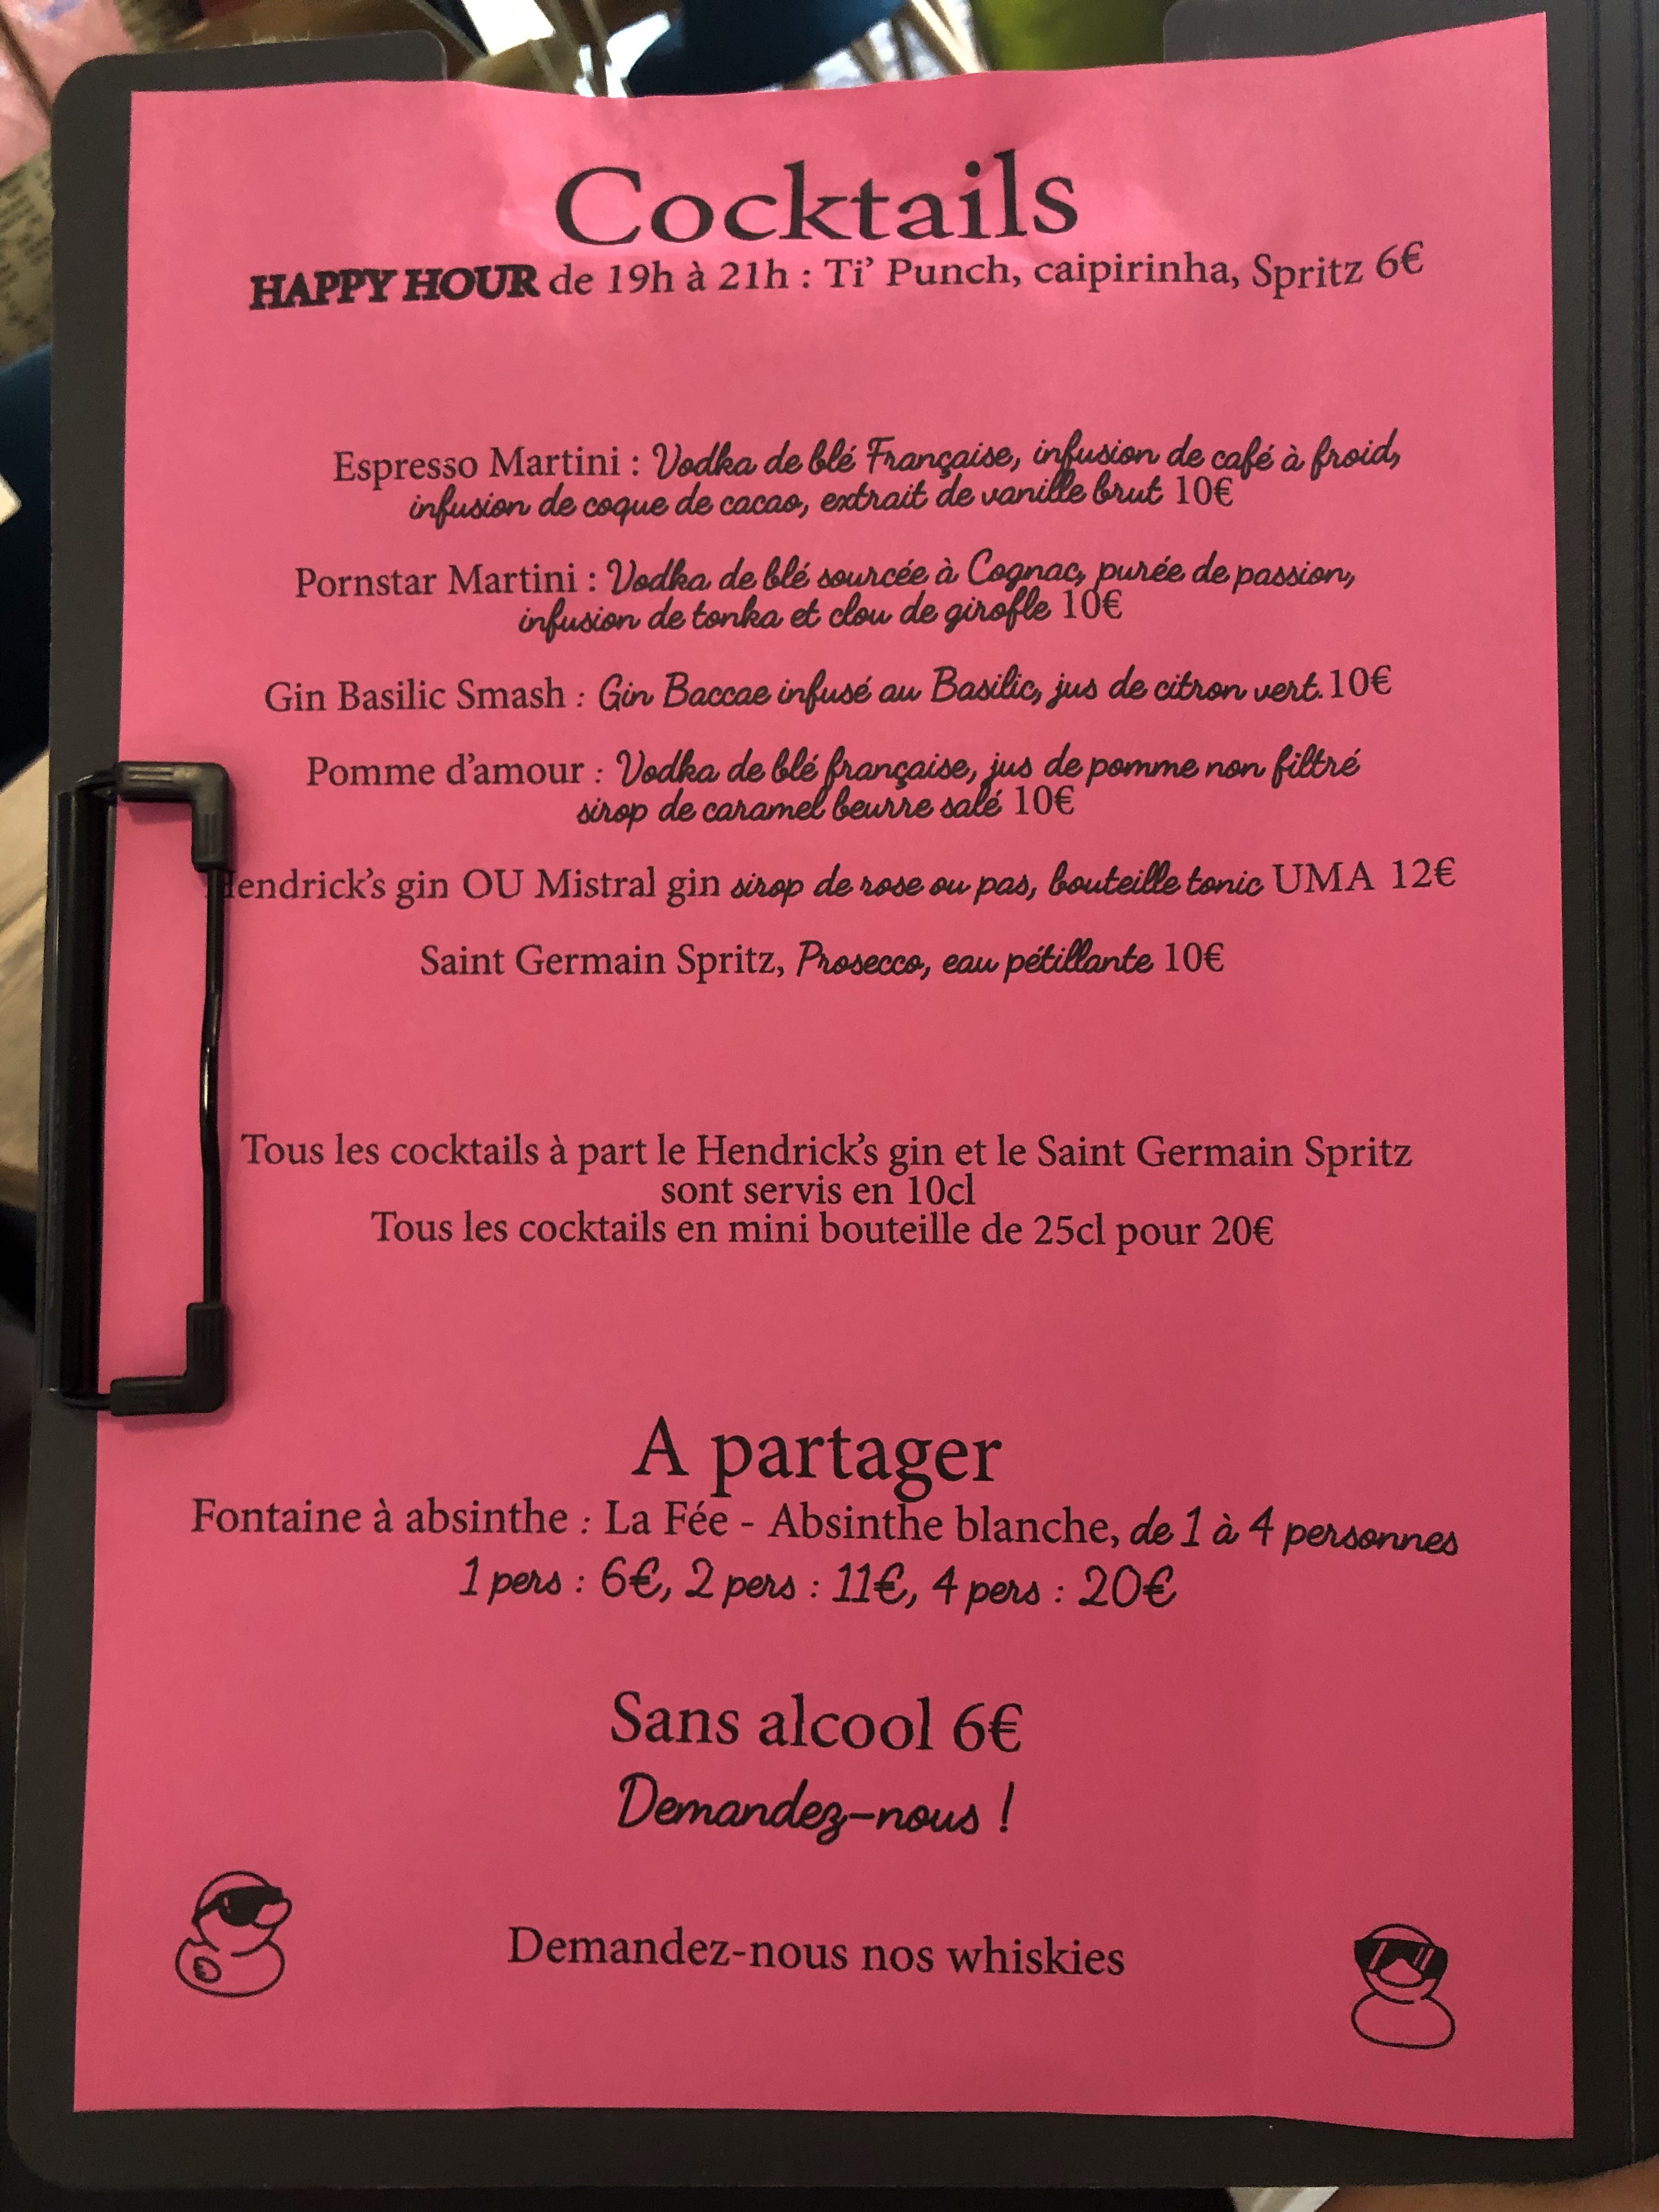 Cocktails
HAPPY HOUR de 19h à 21h : Ti' Punch, caipirinha, Spritz 6€
Espresso Martini : Vodka de blé Française, infusion de café à froid,
infusion de coque de cacao, extrait de vanille brut 10€
Pornstar Martini : Vodka de blé sourcée à Cognac, purée de passion,
infusion de tonka et clou de girofle 10€
Gin Basilic Smash : Gin Baccae infusé au Basilic, jus de citron vert. 10€
Pomme d'amour : Vodka de blé française, jus de pomme non filtré
sirop de caramel beurre salé 10€
Hendrick's gin OU Mistral gin sirop de rose ou pas, bouteille tonic UMA 12€
Saint Germain Spritz, Prosecco, eau pétillante 10€
Tous les cocktails à part le Hendrick's gin et le Saint Germain Spritz
sont servis en 10cl
Tous les cocktails en mini bouteille de 25cl pour 20€
A partager
Fontaine à absinthe : La Fée - Absinthe blanche, de 1 à 4 personnes
1 pers : 6€, 2 pers : 11€, 4 pers : 20€
Sans alcool 6€
Demandez-nous !
Demandez-nous nos whiskies